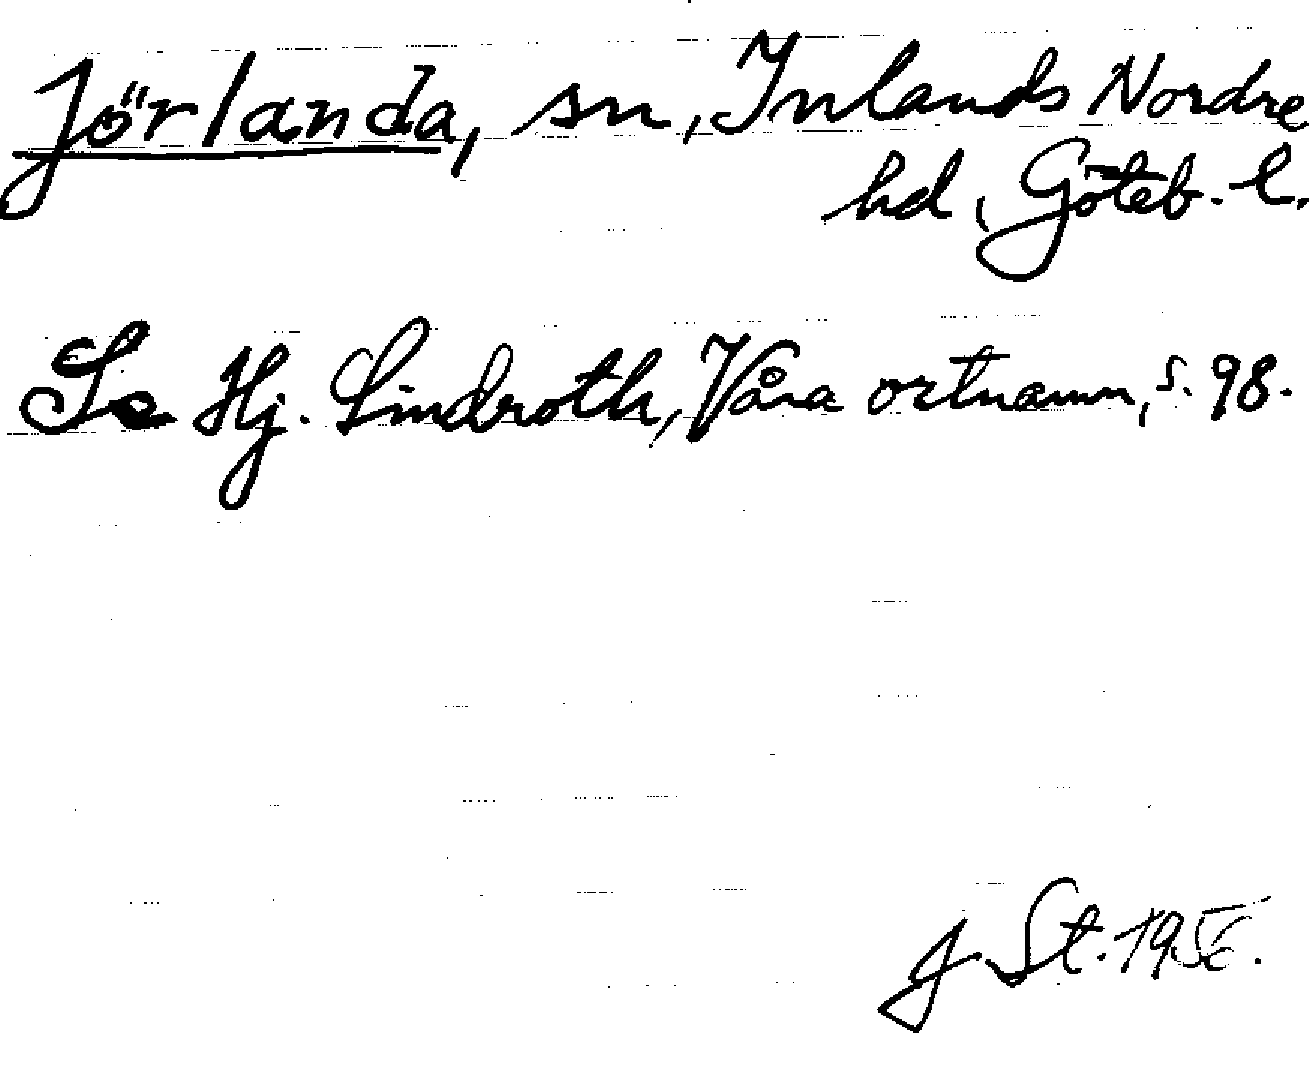 Jörlanda, sn, Inlands Nordre
hd, Göteb. l.
Se Hj. Lindroth, Våra ortnamn, s. 98.
J St. 1956.